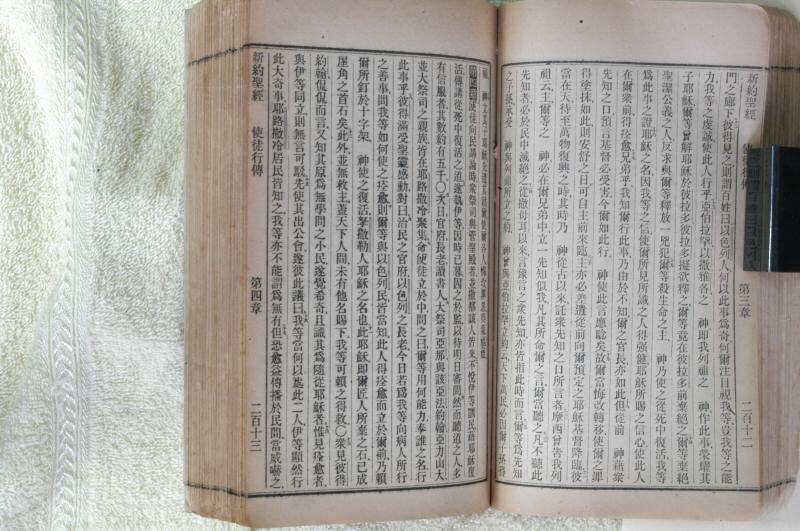 新約聖經 使徒行傳 第三章 二百十二
門之廊下彼得見之則謂百姓曰以色列人何以此事爲奇何爾注目視我等若我等之能
力我等之虔誠使此人行乎亞伯拉罕以撒雅各之 神即我列祖之 神作此事榮耀其
子耶穌爾等曾解耶穌於彼拉多彼拉多擬欲釋之爾等竟在彼拉多前棄絕之爾等棄絕
聖潔公義之人反求與爾等釋放一兇犯爾等殺生命之主 神乃使之從死中復活我等
爲此事之證耶穌之名因我等之信使爾所見所識之人得强健耶穌所賜之信心使此人
在爾衆前得痊愈兄弟乎我知爾行此事乃由於不知爾之官長亦如此但從前 神藉衆
先知之口預言基督必受害今爾如此行 神使此言應驗矣故爾當悔改轉移使爾之罪
得塗抹如此則安舒之日可自主前來臨主亦必差遣從前向爾預定之耶穌基督降臨彼
當在天待至萬物復興之時其時乃 神從古以來託衆先知之口所言者摩西曾告我列
祖云主爾等之 神必在爾兄弟中立一先知似我凡其所命爾之言爾當聽之凡不聽此
先知者必於民中滅絕之從撒母耳以來言豫言之衆先知亦皆指此時而言爾等爲先知
之子孫承受 神與列祖所立之約 神曾與亞伯拉罕立約云天下萬民必因爾子孫得
使徒向民講論時衆祭司與守聖殿者並撒都該人皆來不悅伊等訓民藉耶穌復
活傳講從死中復活之道遂執伊等因時已暮囚之於監以待明日審問然而聽道之人多
有信服者其數約有五千〇次日官府長老讀書人大祭司亞那與該亞法約翰亞力山大
並大祭司之親族皆在耶路撒冷聚集命使徒立於中間之曰爾等用何能力奉誰之名行
此事乎彼得滿受聖靈感動對曰治民之官府以色列之長老今日若爲我等向病人所行
之善事問我等如何使之痊愈則爾等與以色列民皆當知此人得痊愈而立於爾前乃賴
爾所釘於十字架 神使之復活拿撒勒人耶穌之名也此耶穌即爾匠人所棄之石已成
屋角之首石矣此外並無救主蓋天下人間未有他名賜下我等可賴之得救〇衆見彼得
約翰侃侃而言又知其原爲無學問之小民遂覺希奇且識其爲隨從耶穌者惟見痊愈者
與伊等同立則無言可駁先使其出公會遂彼此議曰我等當何以處此二人伊等顯然行
此大奇事耶路撒冷居民皆知之我等亦不能謂爲無有恐愈益傳播於民間當威嚇之
新約聖經 使徒行傳 第四章 二百十三